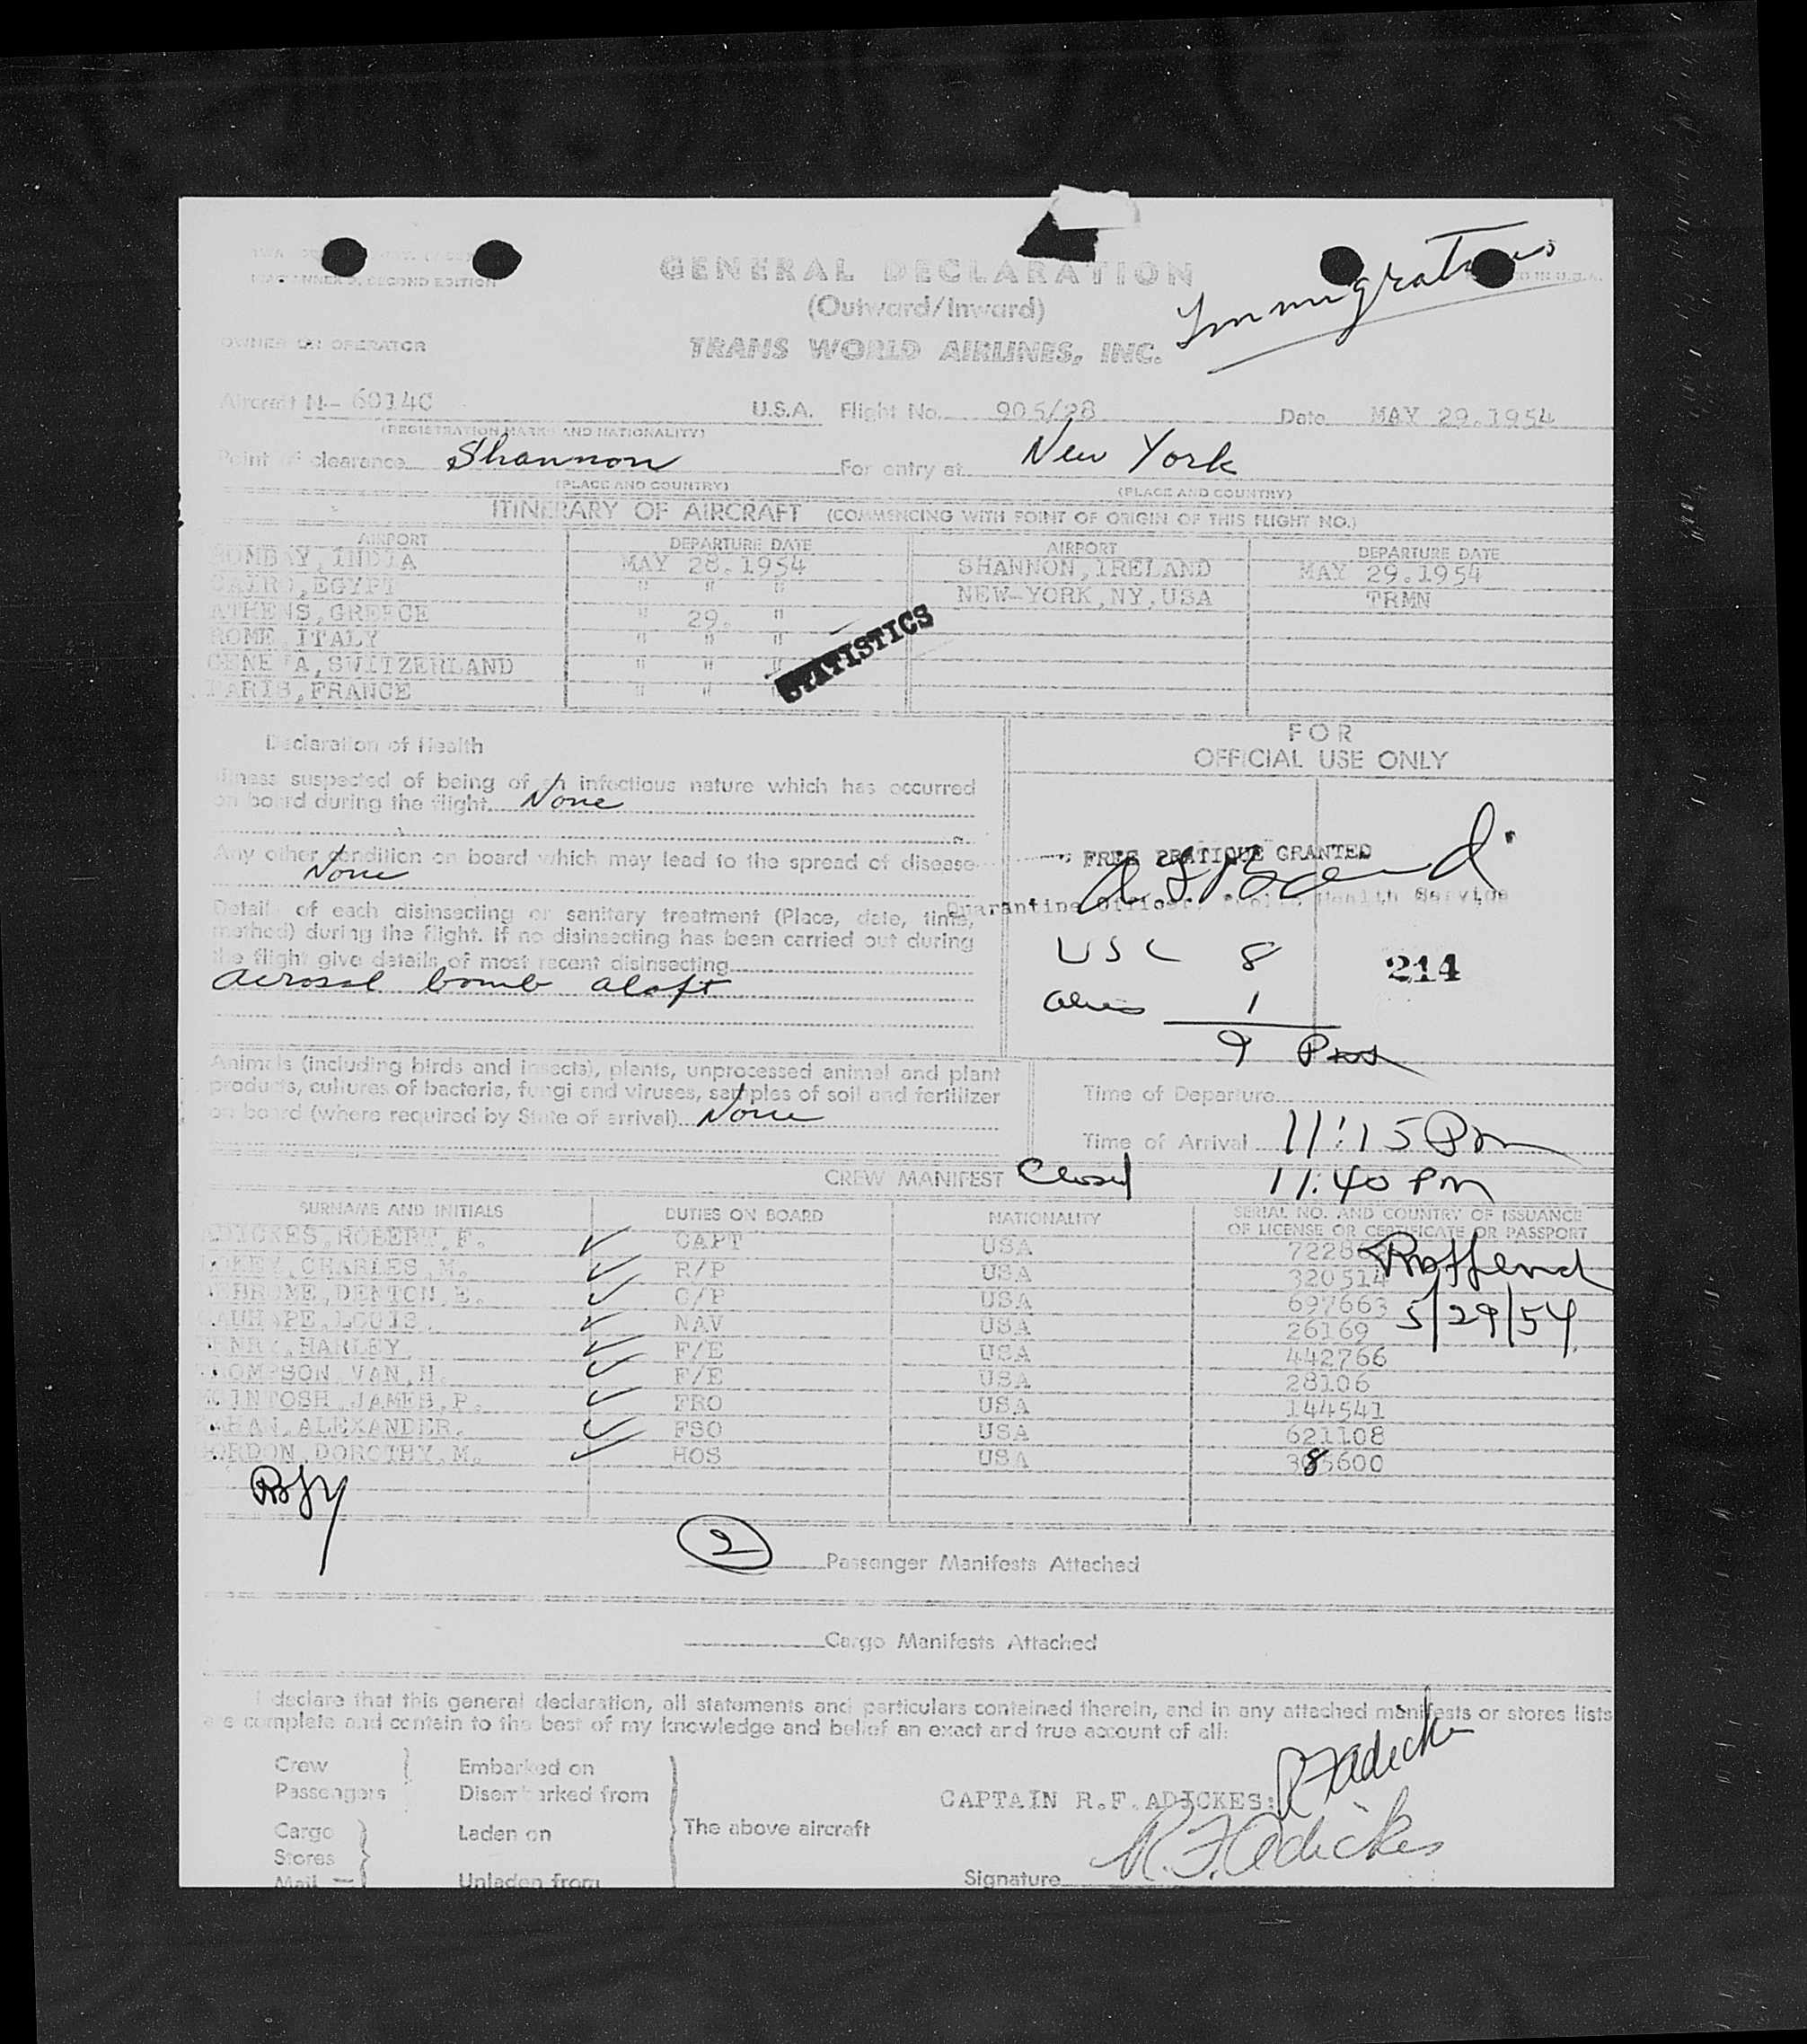 SECOND EDITION
GENERAL DECLARATION
Immigrations
(Outward/Inward)
OWNER OR OPERATOR
TRANS WORLD AIRLINES, INC.
Aircraft N- 6014C U.S.A. Flight No. 905/28 Date MAY 29.1954
(REGISTRATION MARKS AND NATIONALITY)
Point of clearance Shannon For entry at New York
(PLACE AND COUNTRY) (PLACE AND COUNTRY)
ITINERARY OF AIRCRAFT (COMMENCING WITH POINT OF ORIGIN OF THIS FLIGHT NO.)
AIRPORT DEPARTURE DATE AIRPORT DEPARTURE DATE
BOMBAY,INDIA MAY 28.1954 SHANNON,IRELAND MAY 29.1954
CAIRO,EGYPT " " " NEW-YORK,NY.USA TRMN
ATHENS,GREECE " 29. "
ROME,ITALY " " "
GENEVA,SWITZERLAND " " "
PARIS,FRANCE " "
STATISTICS
Declaration of Health
Illness suspected of being of an infectious nature which has occurred
on board during the flight None
Any other condition on board which may lead to the spread of disease
None
Details of each disinsecting or sanitary treatment (Place, date, time,
method) during the flight. If no disinsecting has been carried out during
the flight give details of most recent disinsecting
aerosol bomb aloft
Animals (including birds and insects), plants, unprocessed animal and plant
products, cultures of bacteria, fungi and viruses, samples of soil and fertilizer
on board (where required by State of arrival) None
FOR
OFFICIAL USE ONLY
FREE PRATIQUE GRANTED
Quarantine Officer, Public Health Service
USC 8
214
Alien 1
9 Pass
Time of Departure
Time of Arrival 11:15 Pm
CREW MANIFEST Closed 11:40 Pm
SURNAME AND INITIALS DUTIES ON BOARD NATIONALITY SERIAL NO. AND COUNTRY OF ISSUANCE
OF LICENSE OR CERTIFICATE OR PASSPORT
ADICKES,ROBERT,F. CAPT USA 7228
CHARLES,M. R/P USA 320514
DENTON,E. C/P USA 697663
LOUIS. NAV USA 26169
5/29/54
HENRY,HARLEY. F/E USA 442766
THOMPSON,VAN,H. F/E USA 28106
MCINTOSH,JAMES,P. FRO USA 144541
ALEXANDER. FSO USA 621108
GORDON,DOROTHY,M. HOS USA 385600
2 Passenger Manifests Attached
Cargo Manifests Attached
I declare that this general declaration, all statements and particulars contained therein, and in any attached manifests or stores lists
are complete and contain to the best of my knowledge and belief an exact and true account of all:
Crew Embarked on
Passengers Disembarked from
CAPTAIN R.F.ADICKES: RFAdickes
Cargo Laden on The above aircraft
Stores
Mail Unladen from
Signature R.F. Adickes